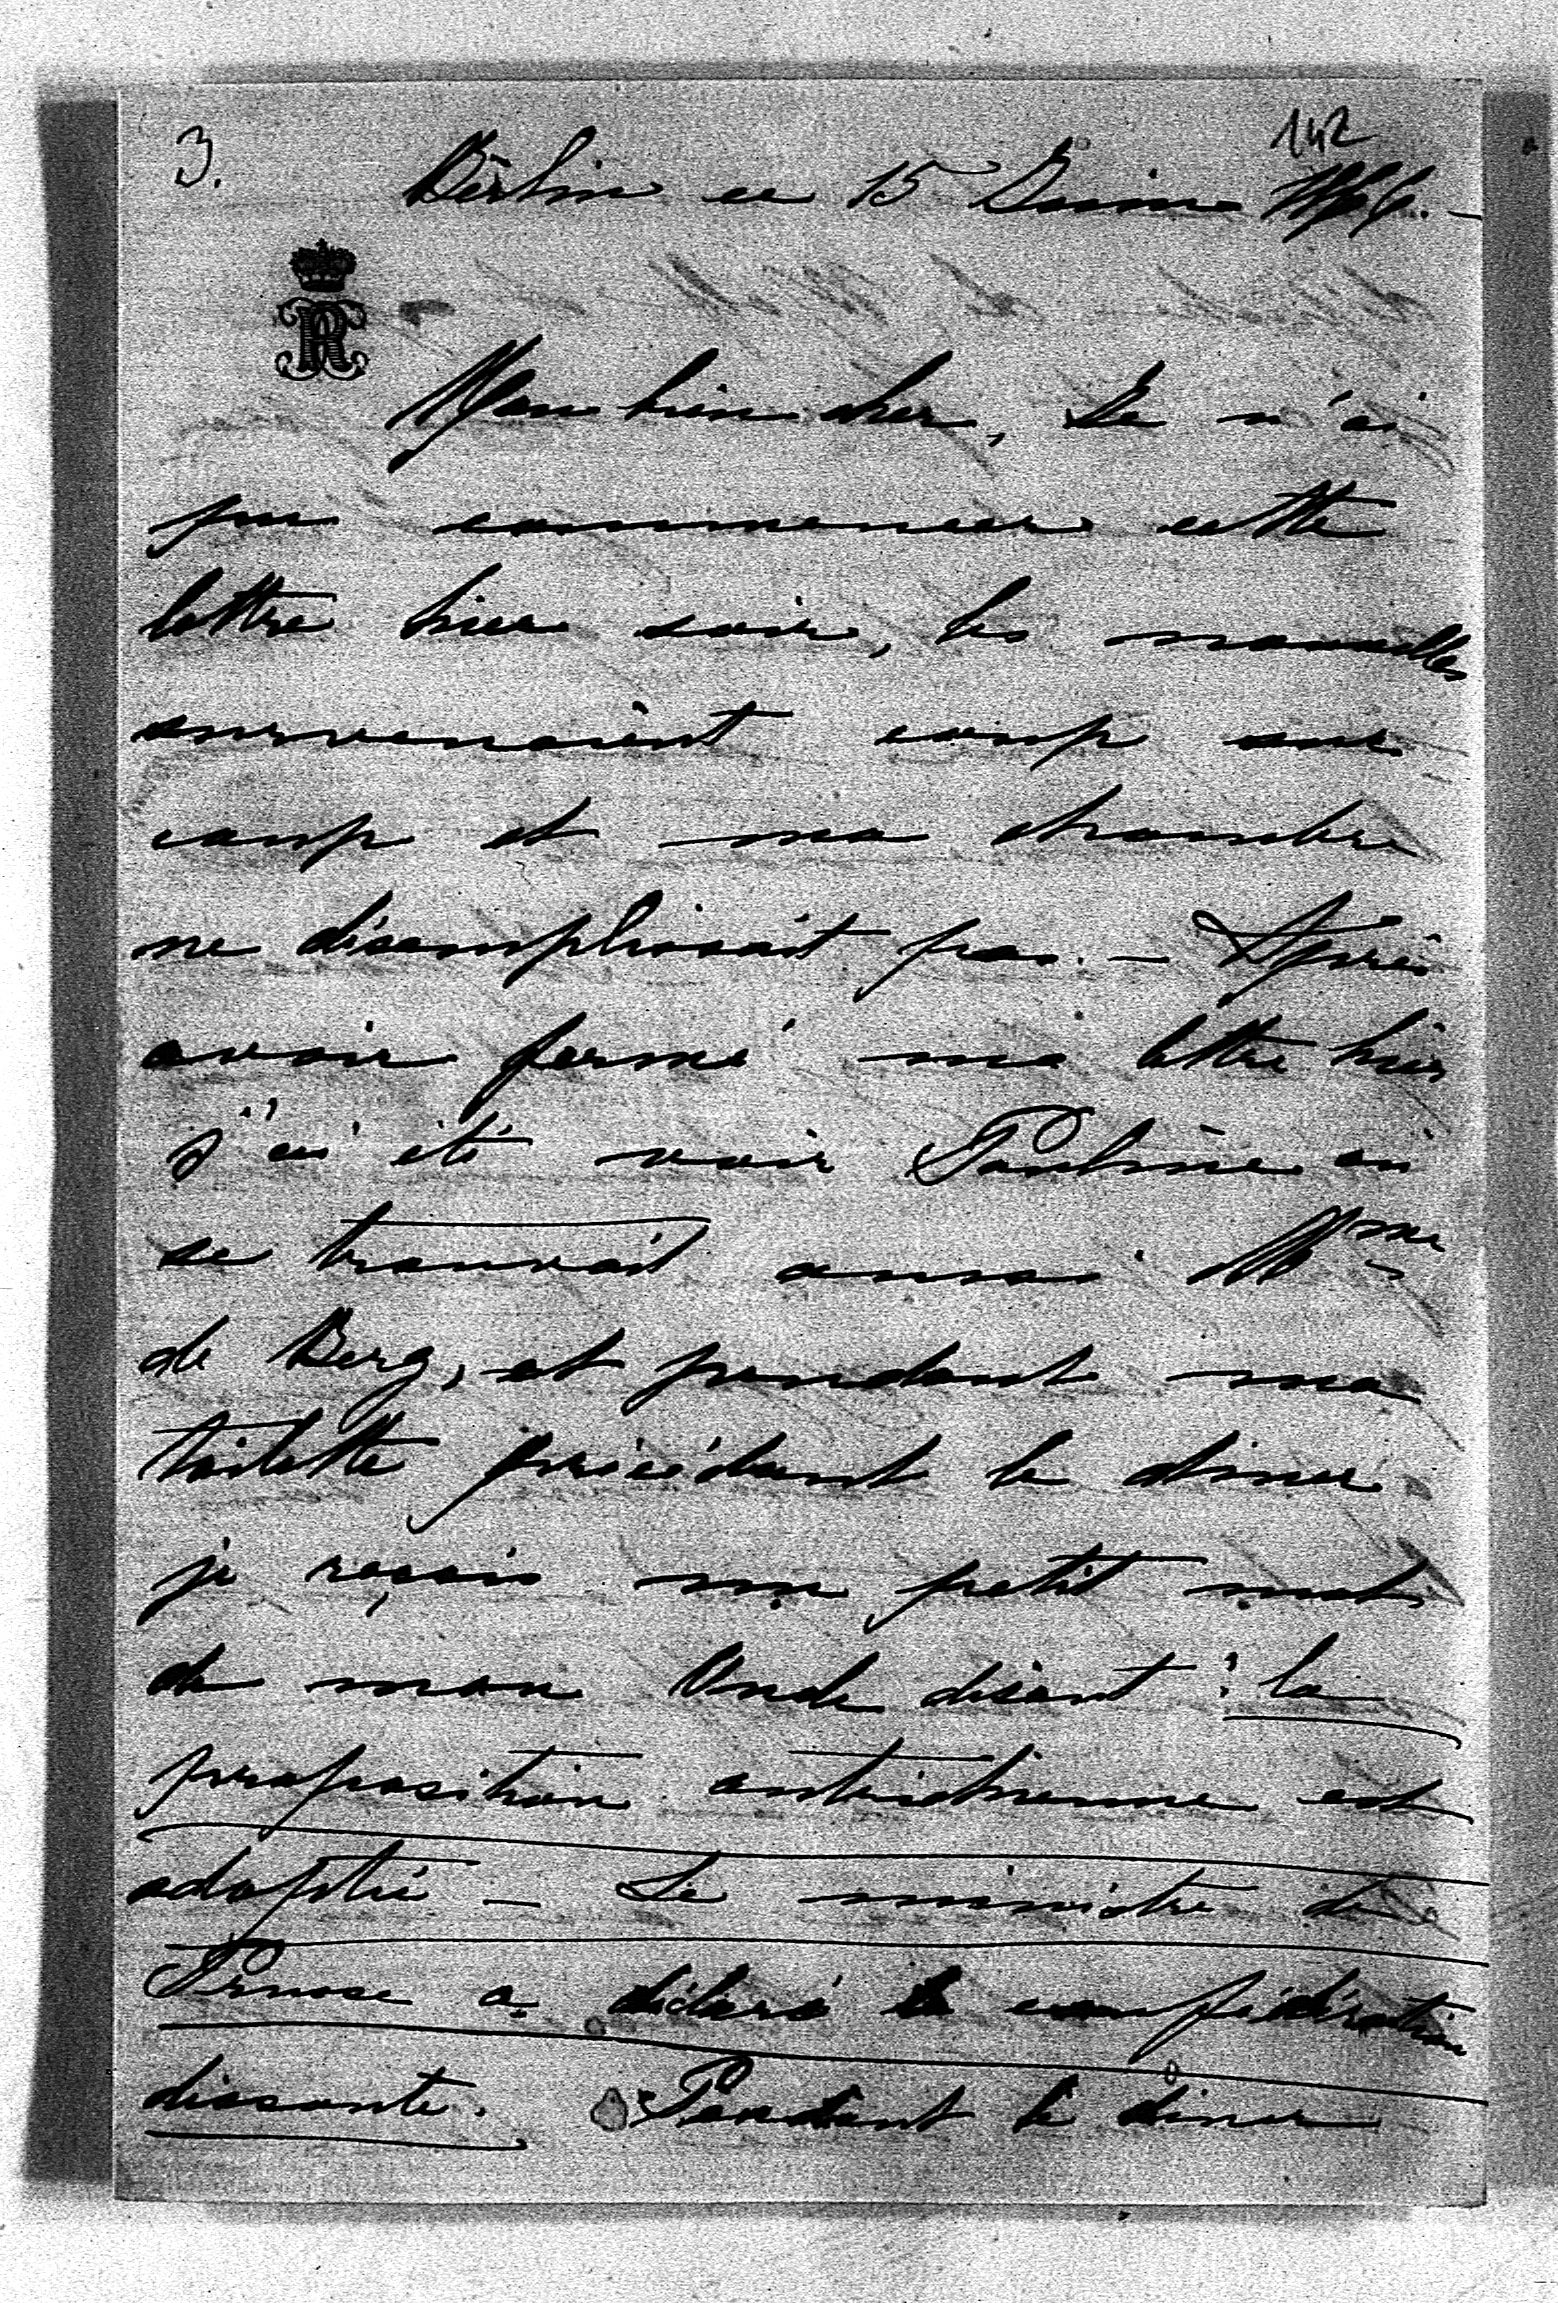 3.
142
Berlin ce 15 Juin 1866. —
Mon bien cher, Je n'ai
pu commencer cette
lettre hier soir, les nouvelles
survenaient coup sur
coup et ma chambre
ne désemplissait pas. — Après
avoir fermé ma lettre hier
j'ai été voir Pauline où
se trouvait aussi Mme
de Berg, et pendant ma
toilette précédant le diner
je reçois un petit mot
de mon Oncle disant : la
proposition autrichienne est
adoptée — Le ministre de
Prusse a déclaré la confédération
dissoute. Pendant le diner